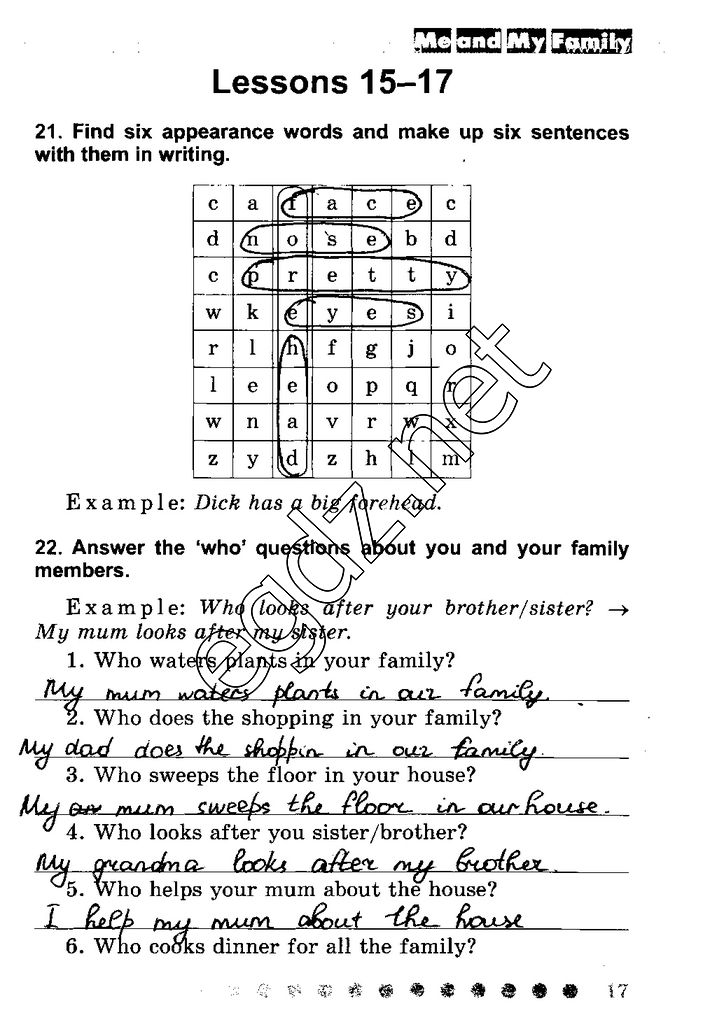 Me and My Family
Lessons 15–17
21. Find six appearance words and make up six sentences
with them in writing.
c a f a c e c
d n o s e b d
c p r e t t y
w k e y e s i
r l h f g j o
l e e o p q r
w n a v r w x
z y d z h l m
Example: Dick has a big forehead.
22. Answer the ‘who’ questions about you and your family
members.
Example: Who looks after your brother/sister? →
My mum looks after my sister.
1. Who waters plants in your family?
My mum waters plants in our family.
2. Who does the shopping in your family?
My dad does the shoppin in our family.
3. Who sweeps the floor in your house?
My mum sweeps the floor in our house.
4. Who looks after you sister/brother?
My grandma looks after my brother.
5. Who helps your mum about the house?
I help my mum about the house
6. Who cooks dinner for all the family?
17
egdz.net